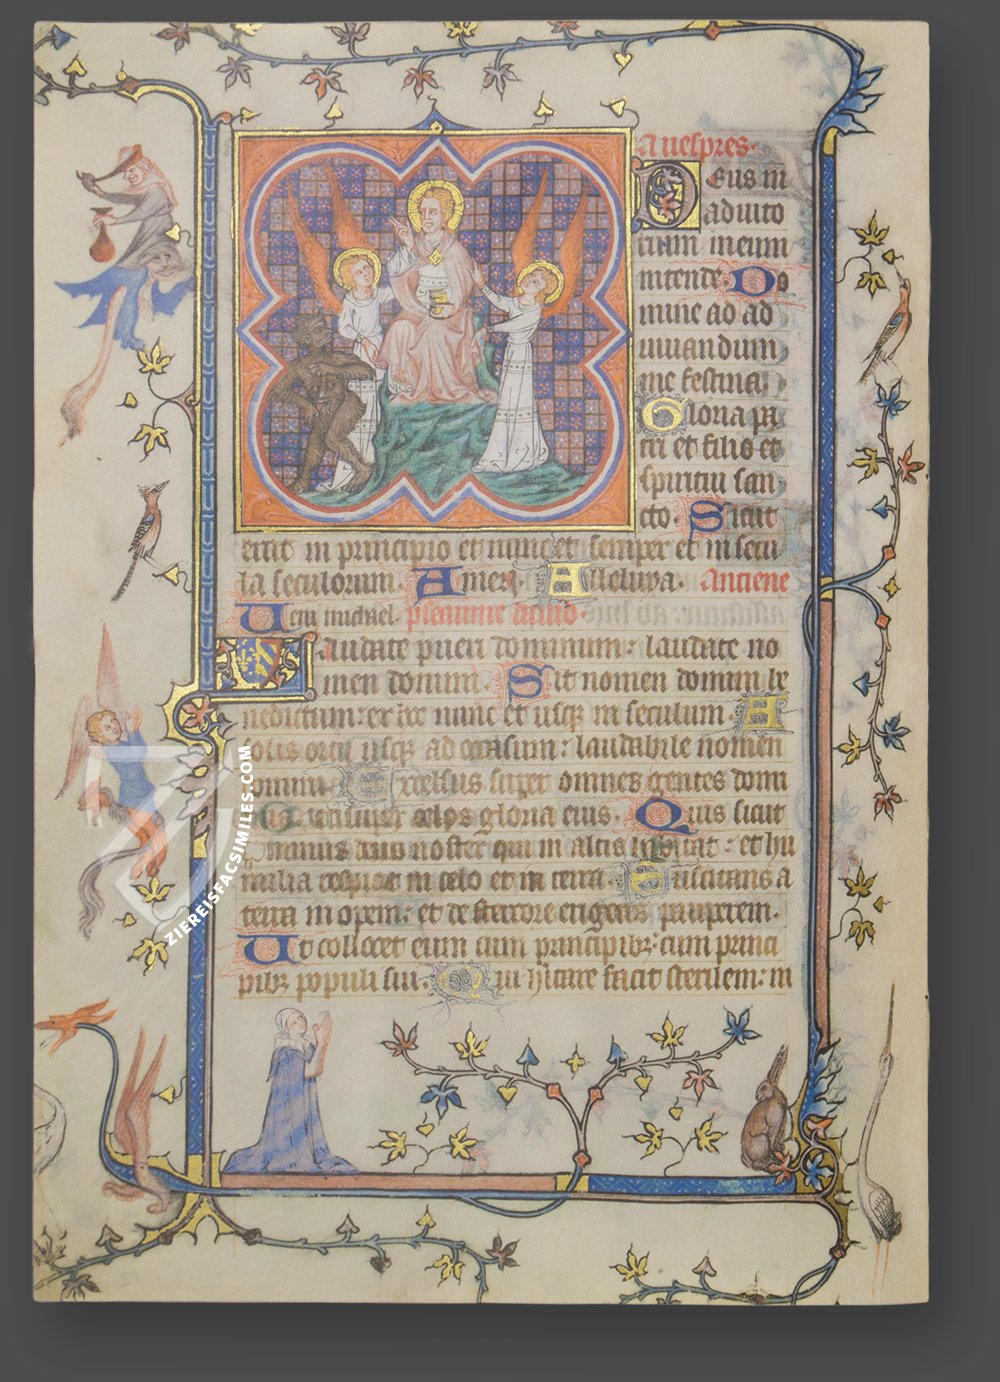 A uespres.
Deus in
adiuto
rium meum
intende. Do
mine ad ad
iuuandum
me festina.
Gloria pa
tri et filio et
spiritui san
cto. Sicut
erat in principio et nunc et semper et in secu
la seculorum. Amen. Alleluya. Antiene
Ueni michael. pseaume dauid.
Laudate pueri dominum: laudate no
men domini. Sit nomen domini be
nedictum: ex hoc nunc et usqz in seculum. A
solis ortu usqz ad occasum: laudabile nomen
domini. Excelsus super omnes gentes domi
super celos gloria eius. Quis sicut
dominus deus noster qui in altis habitat: et hu
milia respicit in celo et in terra. Suscitans a
terra inopem: et de stercore erigens pauperem.
Ut collocet eum cum principibz: cum princi
pibz populi sui. Qui hitare facit sterilem: in
ZIEREISFACSIMILES.COM